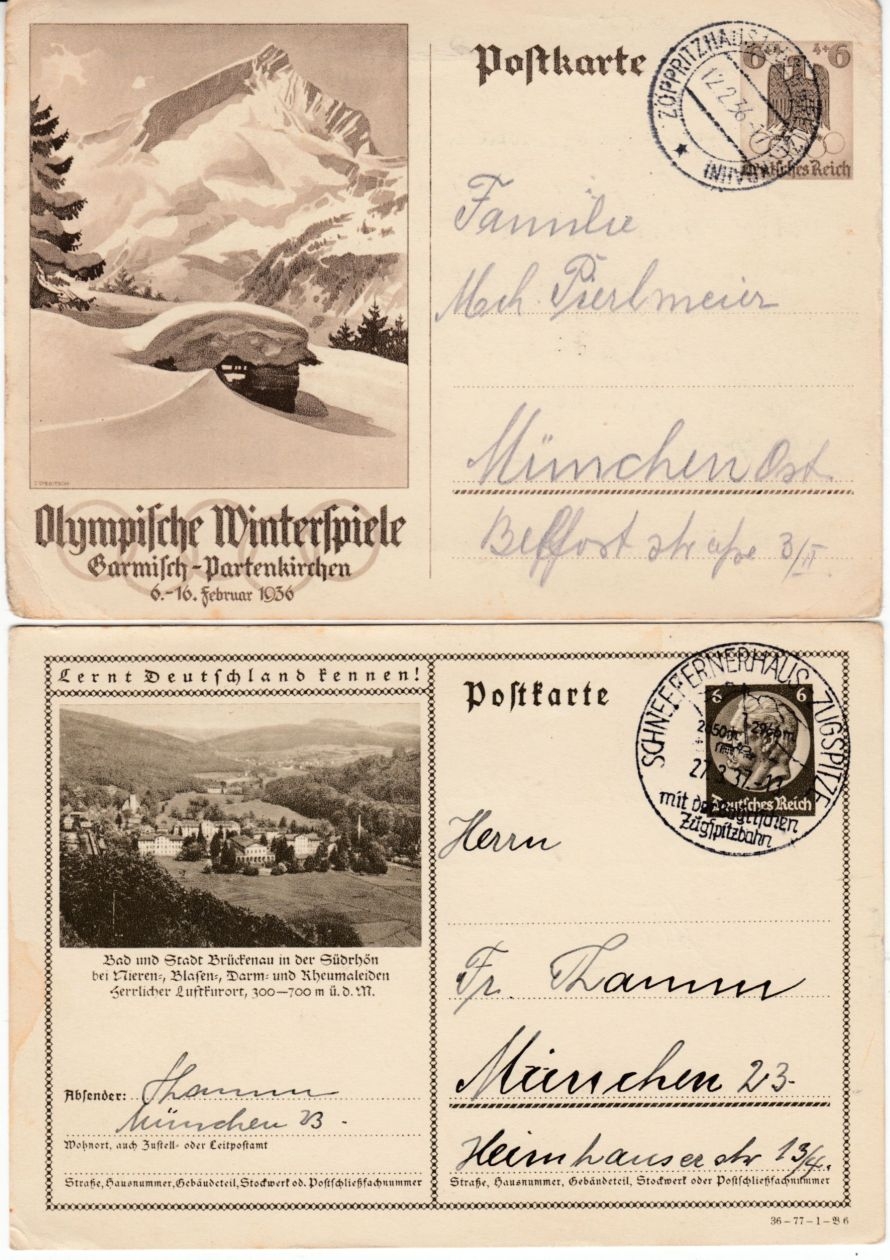 Postkarte
4+6 4+6
Deutsches Reich
ZÖPPRITZHAUS
12.2.36
Familie
Mch. Pierlmeier
München Ost.
Belfort straße 3/II
Olympische Winterspiele
Garmisch-Partenkirchen
6.-16. Februar 1936
Lernt Deutschland kennen!
Postkarte
6 6
Deutsches Reich
SCHNEEFERNERHAUS ZUGSPITZE
mit der Bayrischen
Zugspitzbahn
Bad und Stadt Brückenau in der Südrhön
bei Nieren-, Blasen-, Darm- und Rheumaleiden
Herrlicher Luftkurort, 300—700 m ü. d. M.
Herrn
Fr. Thamm
München 23-
Heimhauserstr 13/4.
Absender: Thamm
München 23 -
Wohnort, auch Zustell- oder Leitpostamt
Straße, Hausnummer, Gebäudeteil, Stockwerk od. Postschließfachnummer
Straße, Hausnummer, Gebäudeteil, Stockwerk oder Postschließfachnummer
36-77-1-B 6